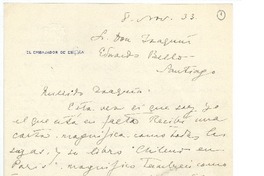 8. Nov. 33
Sr. Don Joaquín
EL EMBAJADOR DE CHILE
Edwards Bello -
Santiago
Querido Joaquín:
Esta vez sí que soy yo
el que está en falta. Recibí una
carta magnífica, como todas las
suyas, y su libro "Chilenos en
París", magnífico también como